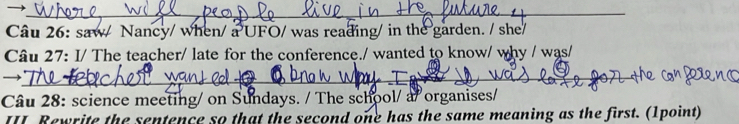 → where will people live in the future
Câu 26: saw/ Nancy/ when/ a UFO/ was reading/ in the garden. / she/
Câu 27: I/ The teacher/ late for the conference./ wanted to know/ why / was/
→ The teacher wanted to know why I was late for the conference
Câu 28: science meeting/ on Sundays. / The school/ a/ organises/
III. Rewrite the sentence so that the second one has the same meaning as the first. (1point)